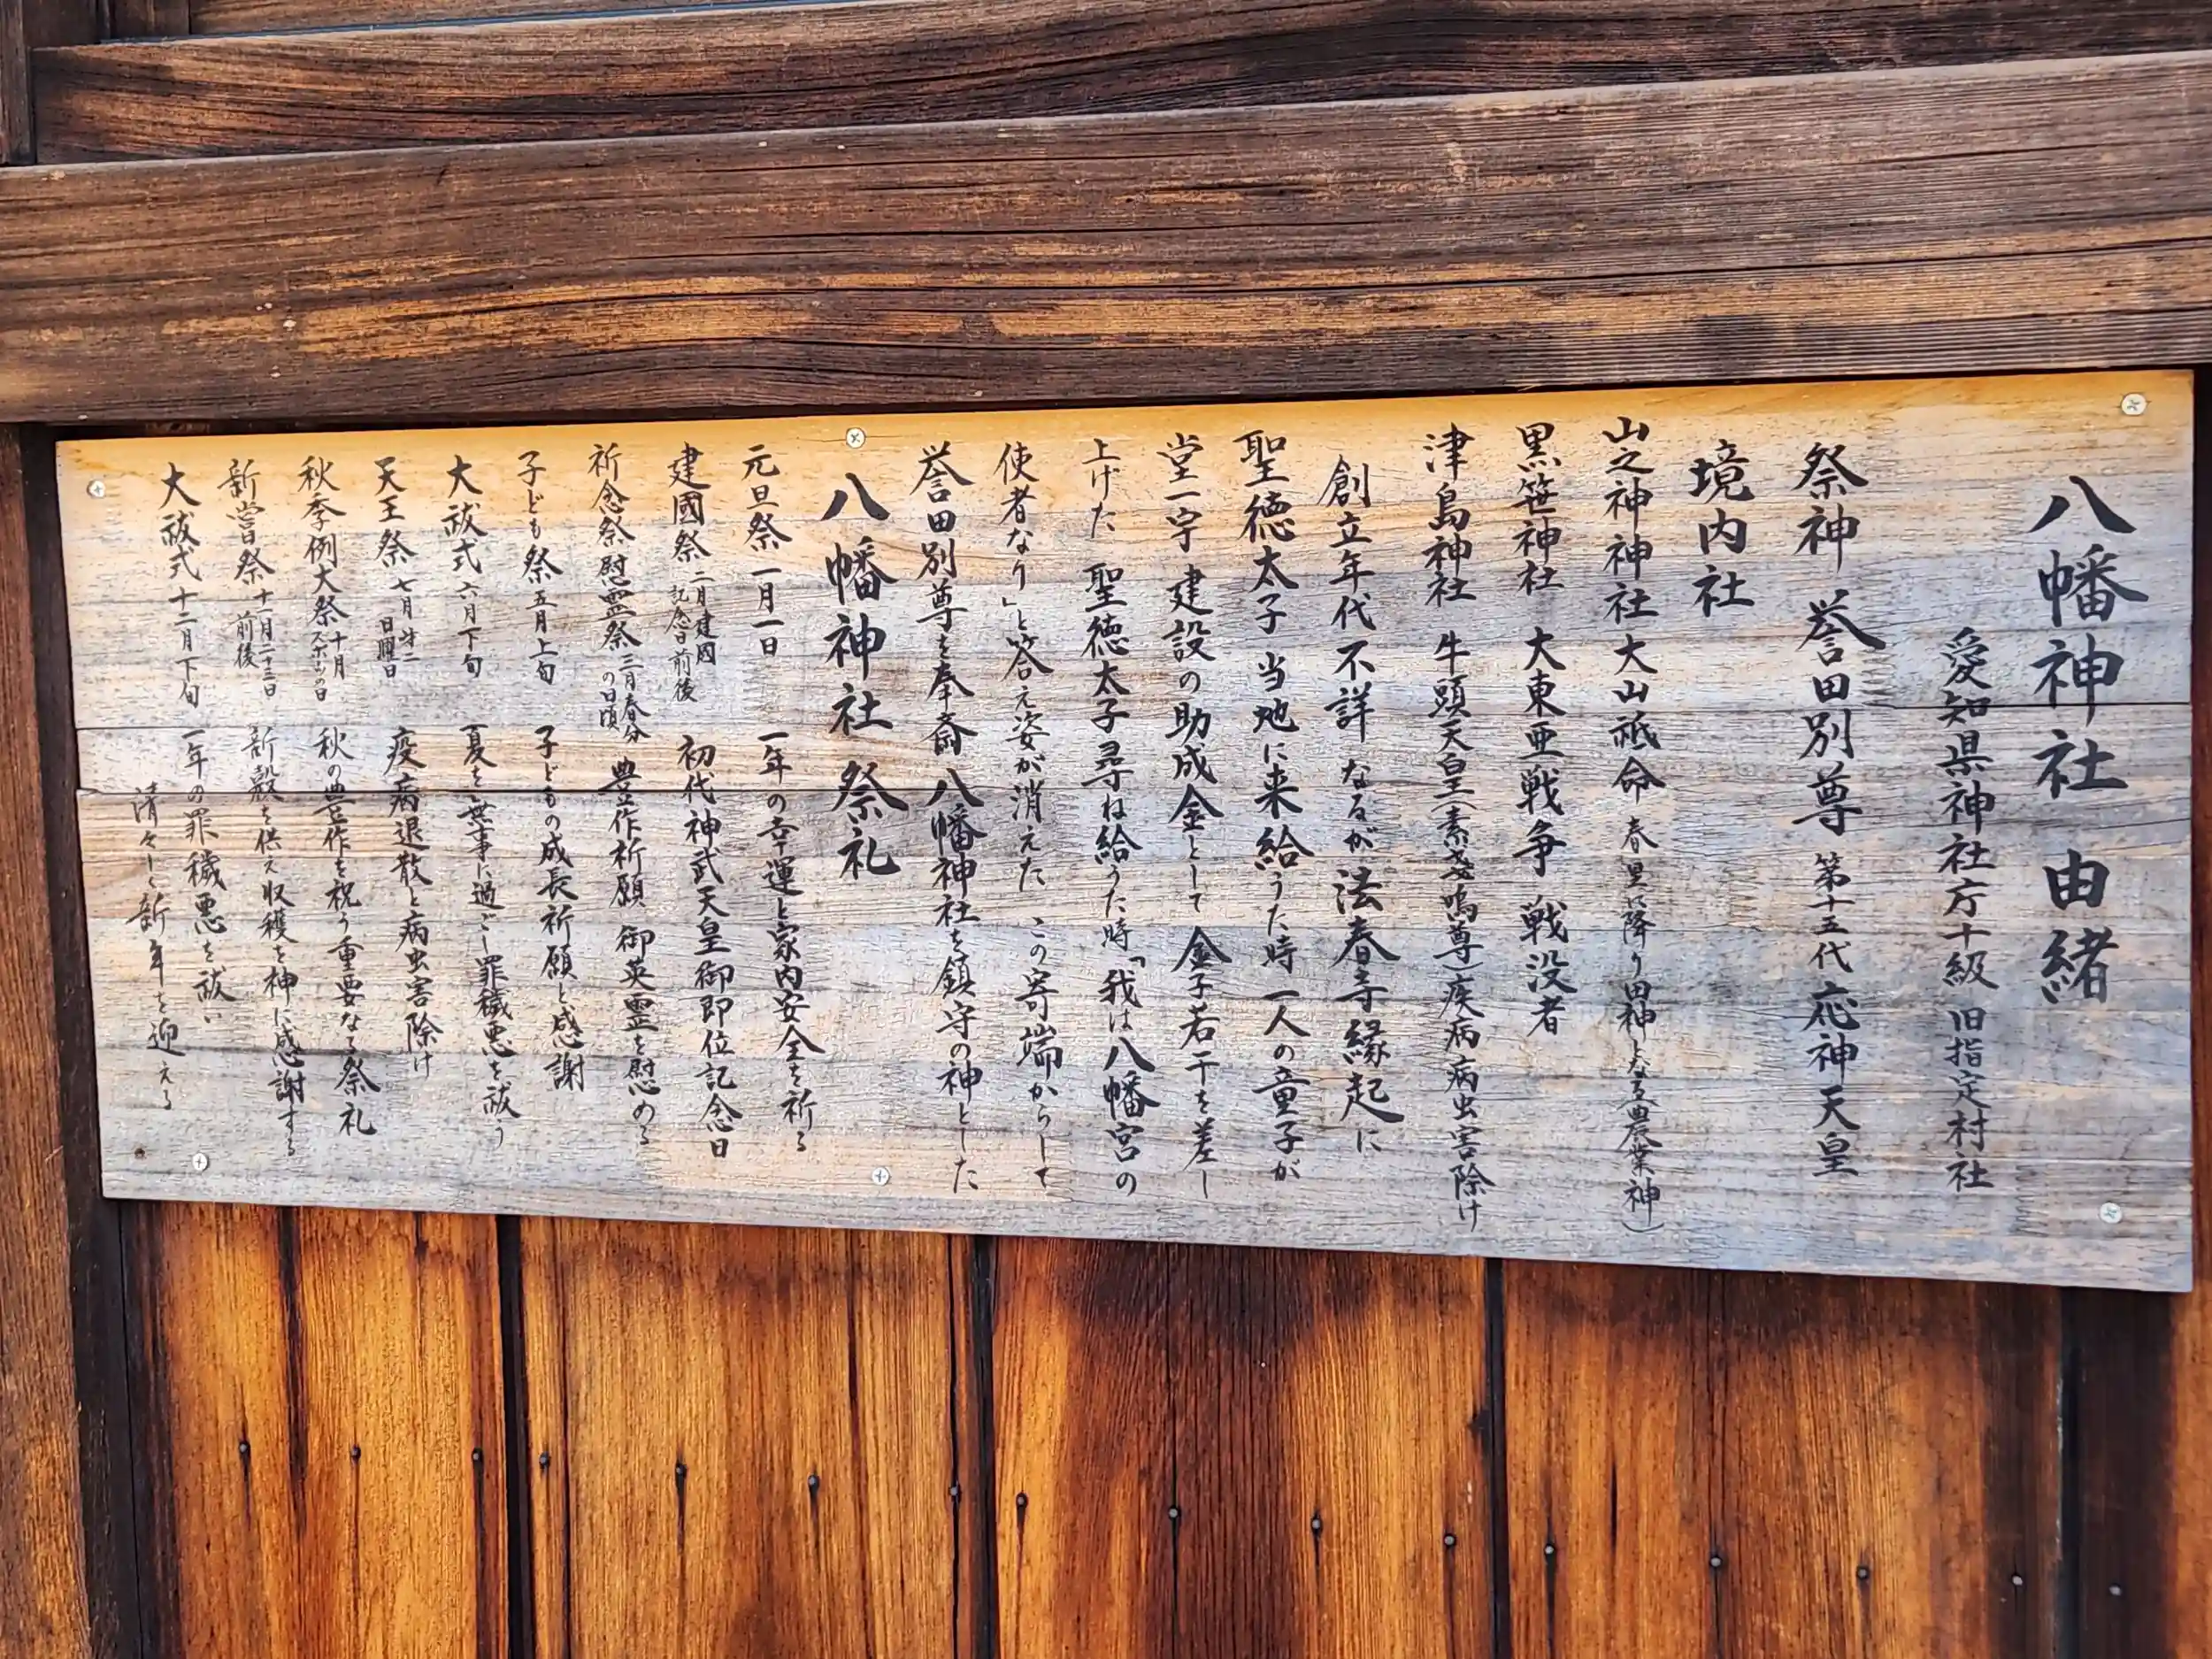 八幡神社 由緒
愛知県神社庁十級 旧指定村社
祭神 誉田別尊 第十五代応神天皇
境内社
山之神神社 大山祇命 春里に降り田神となる農業神)
黒笹神社 大東亜戦争 戦没者
津島神社 牛頭天皇(素戔嗚尊)疾病病虫害除け
創立年代不詳なるが法春寺縁起に
聖徳太子当地に来給うた時一人の童子が
堂一宇建設の助成金として金子若干を差し
上げた 聖徳太子尋ね給うた時「我は八幡宮の
使者なり」と答え姿が消えた この寄端からして
誉田別尊を奉斎八幡神社を鎮守の神とした
八幡神社 祭礼
元旦祭 一月一日 一年の幸運と家内安全を祈る
建國祭 二月建国記念日前後 初代神武天皇御即位記念日
祈念祭慰霊祭 三月春分の日頃 豊作祈願 御英霊を慰める
子ども祭 五月上旬 子どもの成長祈願と感謝
大祓式 六月下旬 夏を無事に過ごし罪穢悪を祓う
天王祭 七月才二日曜日 疫病退散と病虫害除け
秋季例大祭 十月スポーツの日 秋の豊作を祝う重要なる祭礼
新嘗祭 十一月二十三日前後 新穀を供え収穫を神に感謝する
大祓式 十二月下旬 一年の罪穢悪を祓い
清々しく新年を迎える